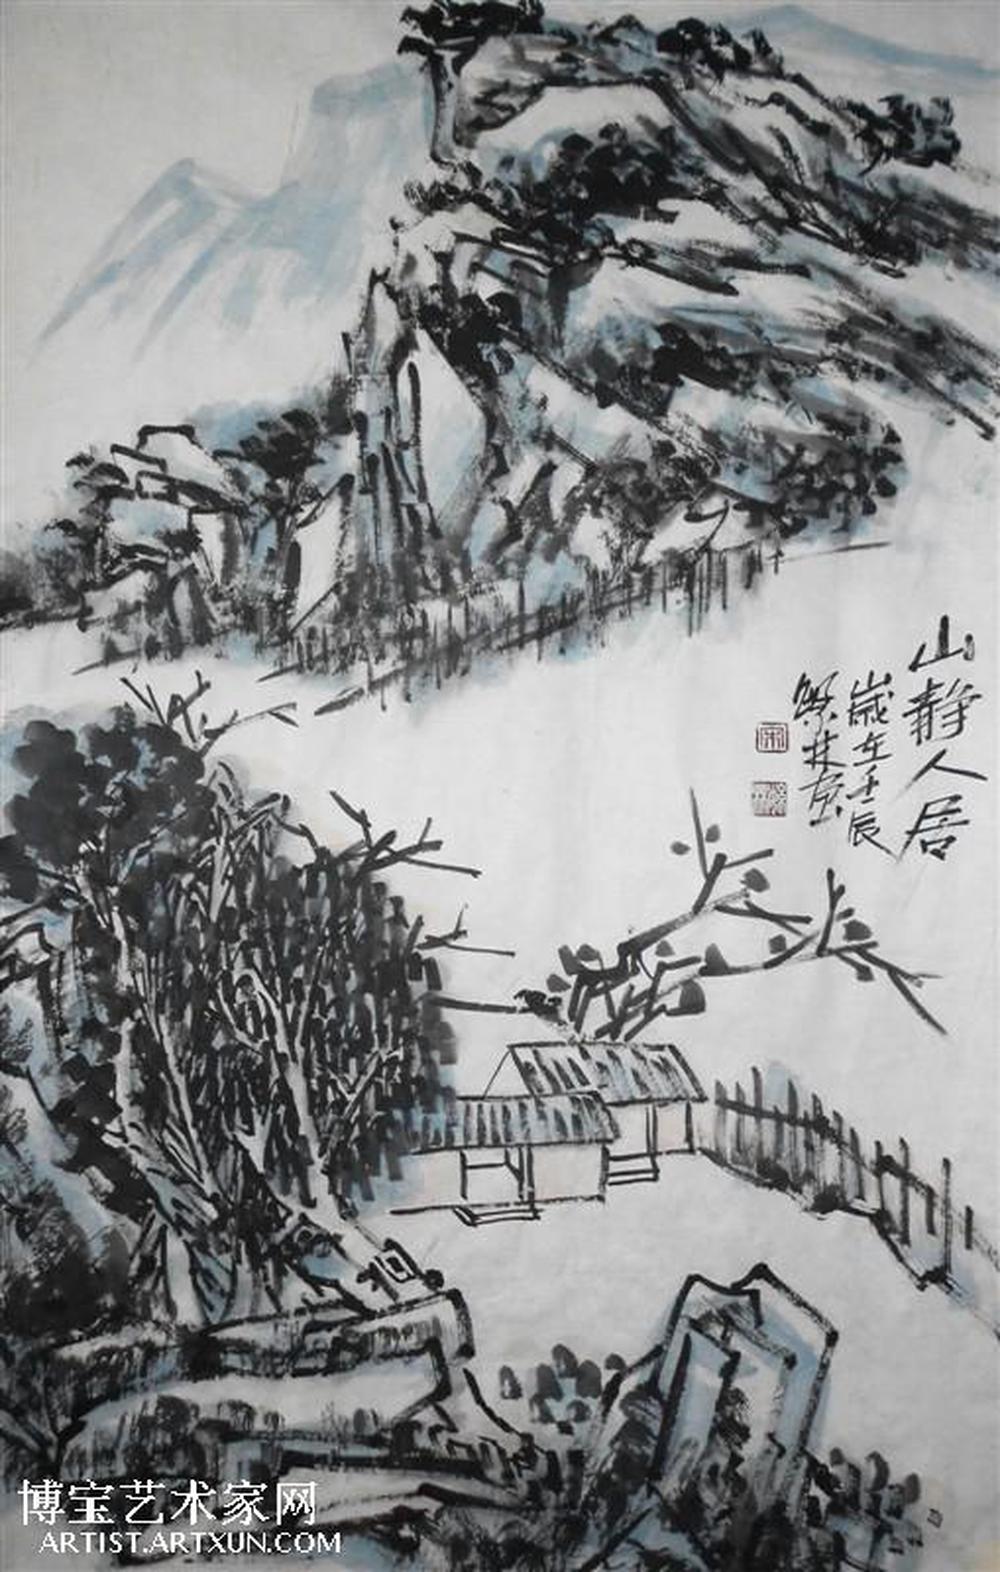 山静人居
岁在壬辰
林画
博宝艺术家网
ARTIST.ARTXUN.COM